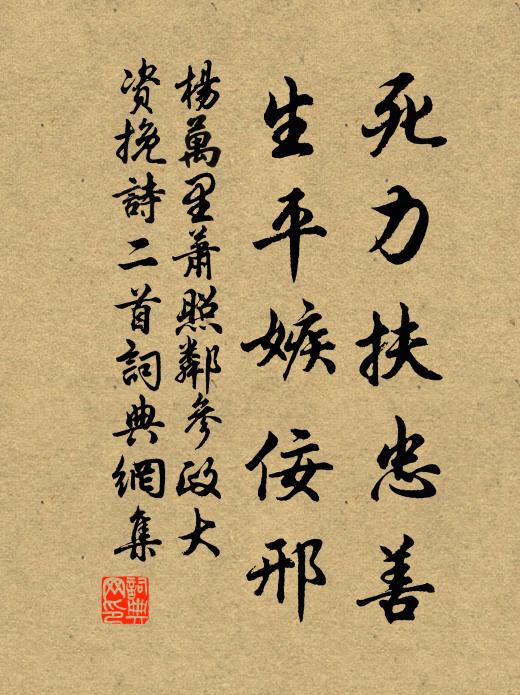 死力扶忠善
生平嫉佞邢
楊萬里蕭照鄰參政大
资挽詩二首詞典網集
詞典網印